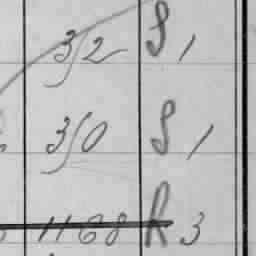 3/2 S 1
3/0 S 1
1168 R 3